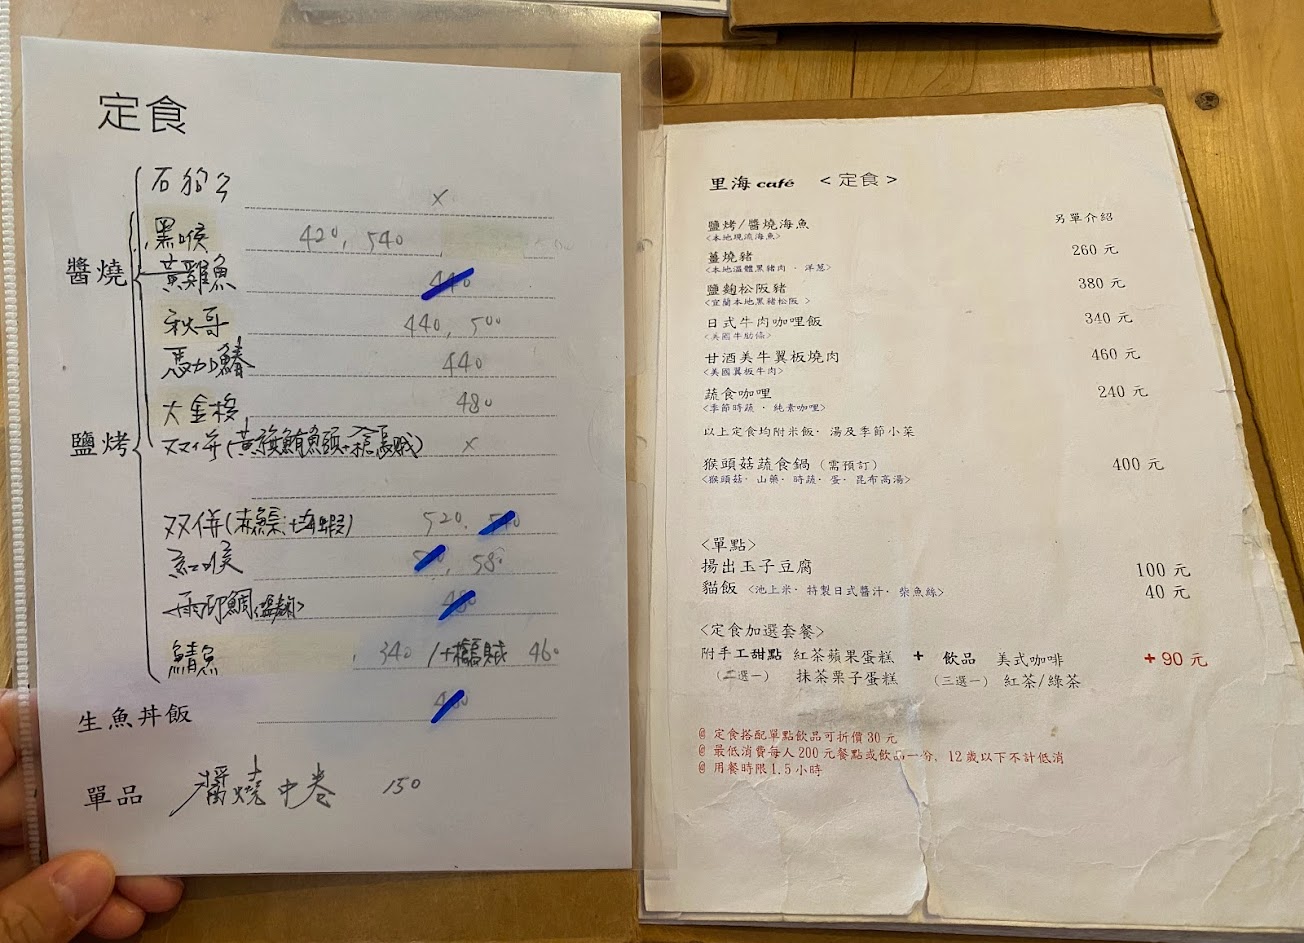 定食
石狗公 x
黑喉 420, 540
醬燒
黃雞魚 440
秋哥 440, 500
馬加鰆 440
大金梭 480
鹽烤
双併(黃旗鮪魚頭+檣烏賊) x
双併(赤鯮+海蝦) 520, 540
紅喉 , 580
雨印鯛<鹽麴> 480
鯖魚 340 /+檣烏賊 460
生魚丼飯
單品 醬燒中卷 150
里海 café <定食>
鹽烤/醬燒海魚 另單介紹
<本地現流海魚>
薑燒豬 260 元
<本地溫體黑豬肉 · 洋蔥>
鹽麴松阪豬 380 元
<宜蘭本地黑豬松阪 >
日式牛肉咖哩飯 340 元
<美國牛肋條>
甘酒美牛翼板燒肉 460 元
<美國翼板牛肉>
蔬食咖哩 240 元
<季節時蔬 · 純素咖哩>
以上定食均附米飯· 湯及季節小菜
猴頭菇蔬食鍋 (需預訂) 400 元
<猴頭菇· 山藥· 時蔬· 蛋· 昆布高湯>
<單點>
揚出玉子豆腐 100 元
貓飯 <池上米· 特製日式醬汁· 柴魚絲> 40 元
<定食加選套餐>
附手工甜點 紅茶蘋果蛋糕 + 飲品 美式咖啡 + 90 元
(二選一) 抹茶栗子蛋糕 (三選一) 紅茶/綠茶
@ 定食搭配單點飲品可折價 30 元
@ 最低消費每人 200 元餐點或飲品一分、12 歲以下不計低消
@ 用餐時限 1.5 小時